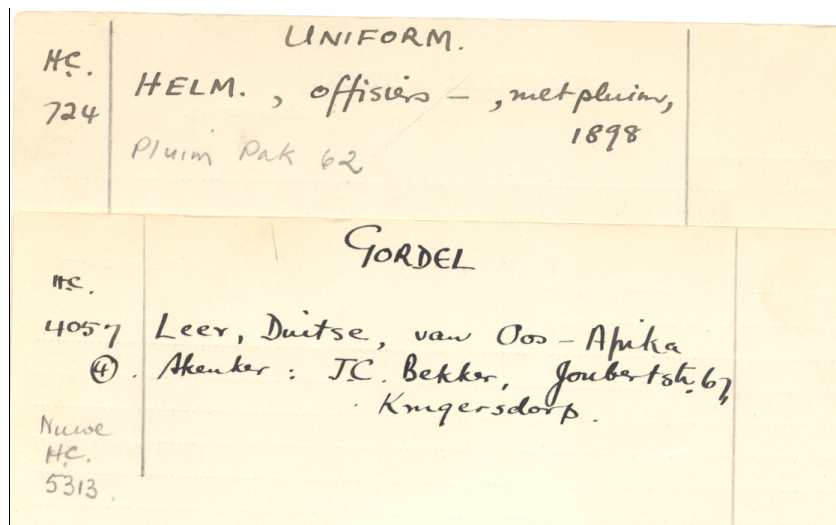 UNIFORM.
H.C.
724
HELM. , offisiers – , met pluim,
1898
Pluim Pak 62
GORDEL
H.C.
4057
Leer, Duitse, van Oos – Afrika
④ . Skenker : J.C. Bekker, Joubertstr. 67,
Krugersdorp.
Nuwe
H.C.
5313.